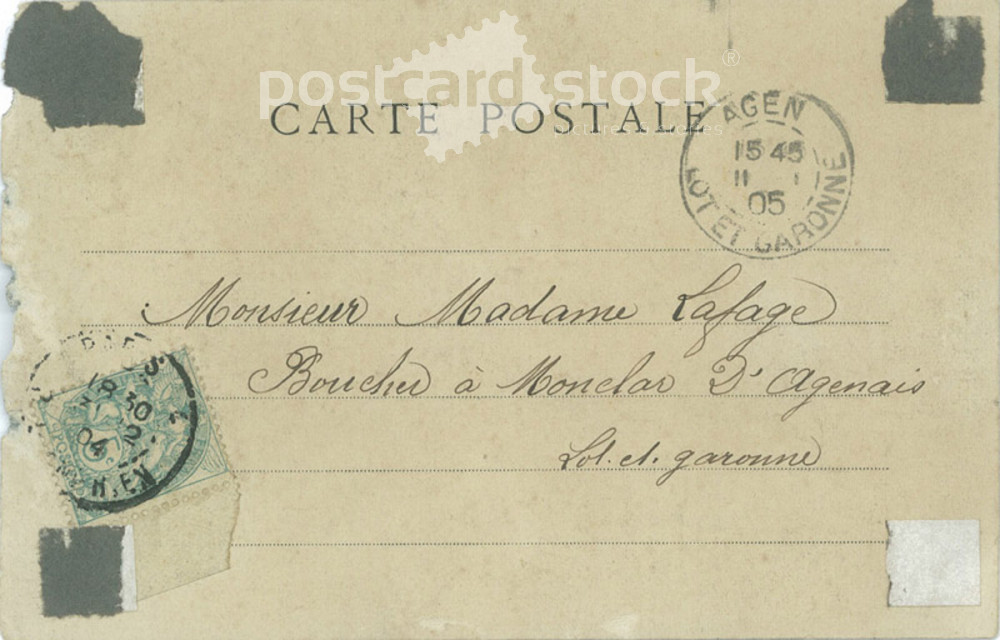 postcard stock®
pictures & stories
CARTE POSTALE
AGEN
15 45
11 1
05
LOT ET GARONNE
Monsieur Madame Lafage
Boucher à Monclar D'Agenais
Lot. et. garonne
30
04